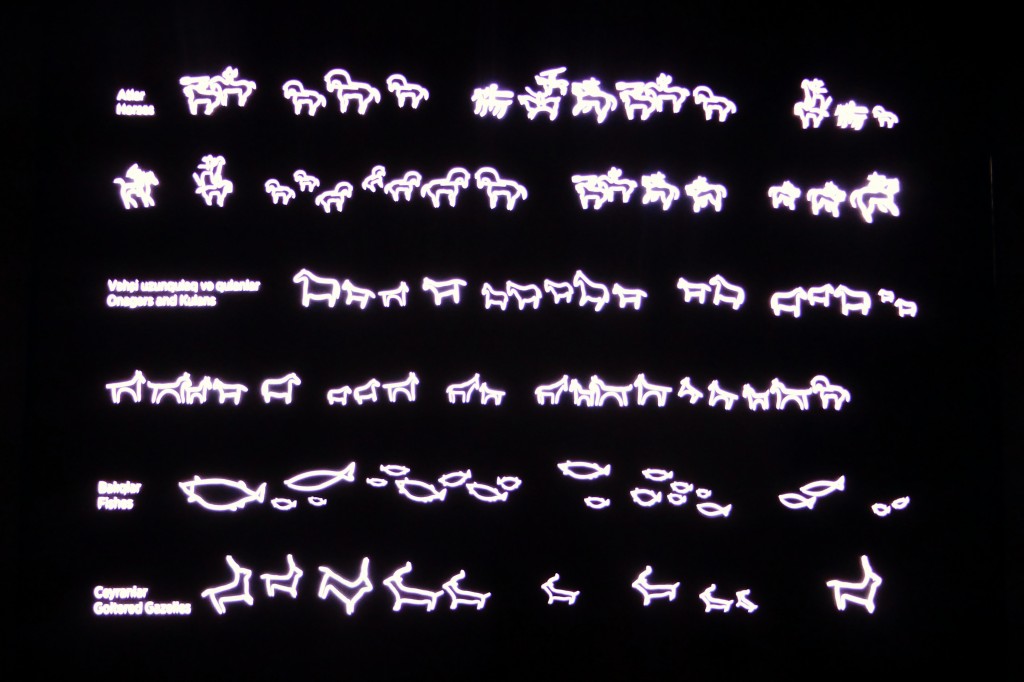 Atlar
Horses
Vəhşi uzunqulaq və qulanlar
Onagers and Kulans
Balıqlar
Fishes
Ceyranlar
Goitered Gazelles